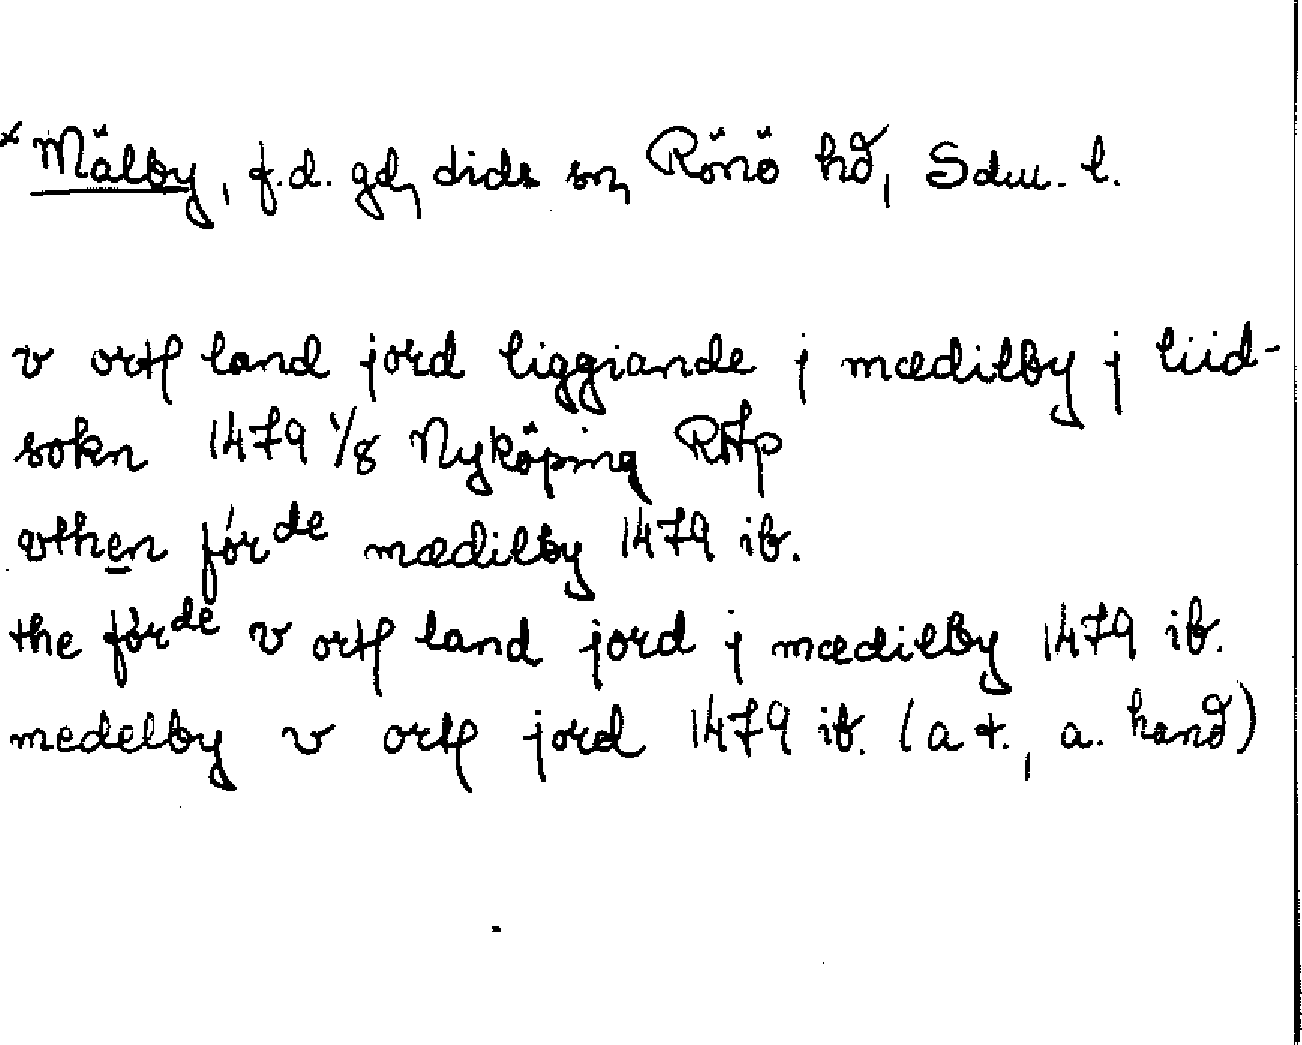 × Mälby, f.d. gd, dids sn, Rönö hd, Sdm. l.
v ortf land jord liggiande j mædilby j liid-
sokn 1479 1/8 Nyköping RAp
vthen förde mædilby 1479 ib.
the förde v ortf land jord j mædilby 1479 ib.
medelby v ortf jord 1479 ib. (a t., a. hand)